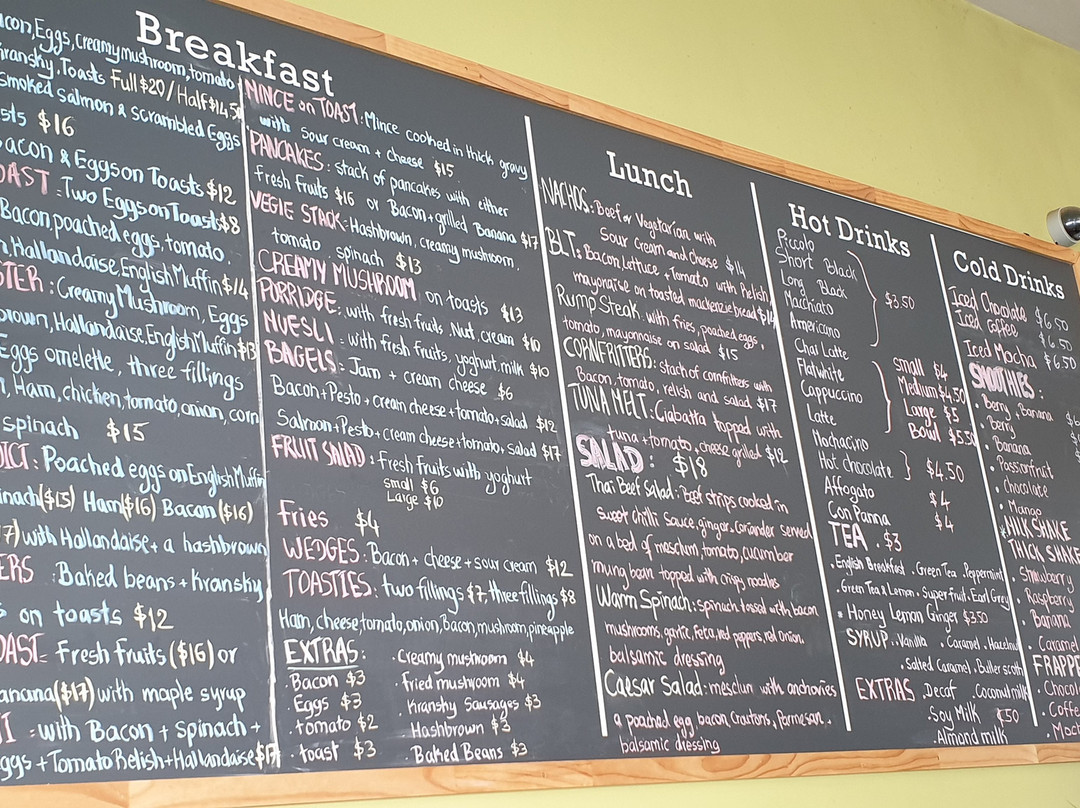 Breakfast
con, Eggs, creamy mushroom, tomato
ransky, Toasts Full $20 / Half $14.50
smoked salmon & scrambled Eggs
sts $16
acon & Eggs on Toasts $12
OAST : Two Eggs on Toasts $8
Bacon, poached eggs, tomato
Hallandaise, English Muffin $14
STER : Creamy Mushroom, Eggs
brown, Hallandaise, English Muffin $13
Eggs omelette, three fillings
, Ham, chicken, tomato, onion, corn
spinach $15
DICT : Poached eggs on English Muffin
inach ($15) Ham ($16) Bacon ($16)
7) with Hallandaise + a hashbrown
ERS : Baked beans + Kransky
s on toasts $12
OAST = Fresh Fruits ($16) or
anana ($17) with maple syrup
I : with Bacon + spinach +
ggs + Tomato Relish + Hallandaise $17
MINCE on TOAST : Mince cooked in thick gravy
with sour cream + cheese $15
PANCAKES : stack of pancakes with either
fresh fruits $16 or Bacon + grilled Banana $17
VEGIE STACK : Hashbrown, creamy mushroom,
tomato spinach $13
CREAMY MUSHROOM on toasts $13
PORRIDGE : with fresh fruits, Nut, cream $10
MUESLI : with fresh fruits, yoghurt, milk $10
BAGELS : Jam + cream cheese $6
Bacon + Pesto + cream cheese + tomato + salad $12
Salmon + Pesto + cream cheese + tomato, salad $17
FRUIT SALAD : Fresh Fruits with yoghurt
small $6
Large $10
Fries $4
WEDGES : Bacon + cheese + sour cream $12
TOASTIES : two fillings $7, three fillings $8
Ham, cheese, tomato, onion, Bacon, mushroom, pineapple
EXTRAS :
. Bacon $3
. Eggs $3
. tomato $2
. toast $3
. Creamy mushroom $4
. Fried mushroom $4
. Kransky Sausages $3
. Hashbrown $3
. Baked Beans $3
Lunch
NACHOS : Beef or Vegetarian with
Sour Cream and Cheese $14
BLT : Bacon, Lettuce + Tomato with Relish
mayonaise on toasted mackenzie bread
Rump Steak with fries, poached eggs,
tomato, mayonnaise on salad $15
CORNFRITTERS : stach of cornfritters with
Bacon, tomato, relish and salad $17
TUNA MELT : Ciabatta topped with
tuna + tomato, cheese grilled $12
SALAD : $18
Thai Beef Salad : Beef strips cooked in
sweet chilli Sauce, ginger, Coriander served
on a bed of mesclum, tomato, cucumber
mung bean topped with crispy noodles
Warm Spinach : spinach tossed with bacon
mushrooms, garlic, Feta, red peppers, red onion,
balsamic dressing
Caesar Salad : mesclun with anchovies
a poached egg, bacon, Croutons, Parmesan,
balsamic dressing
Hot Drinks
Piccolo
Short Black
Long Black
Macchiato
Americano
$3.50
Chai Latte
Flatwhite
Cappuccino
Latte
small $4
Medium $4.50
Large $5
Bowl $5.50
Mochacino
Hot chocolate } $4.50
Affogato $4
Con Panna $4
TEA . $3
. English Breakfast . Green Tea . Peppermint
. Green Tea & Lemon . Superfruit . Earl Grey
• Honey Lemon Ginger $3.50
SYRUP . Vanilla . Caramel . Hazelnut
. Salted Caramel, Butterscoth
EXTRAS . Decaf . Coconut milk
. Soy Milk
. Almond milk
¢50
Cold Drinks
Iced Chocolate $6.50
Iced coffee $6.50
Iced Mocha $6.50
SMOOTHIES :
. Berry, Banana
. Berry
. Banana
• Passionfruit
• chocolate
. Mango
* MILK SHAKE
THICK SHAKE
. Strawberry
. Raspberry
. Banana
. Caramel
FRAPPE
. Chocol
. Coffe
. Moch